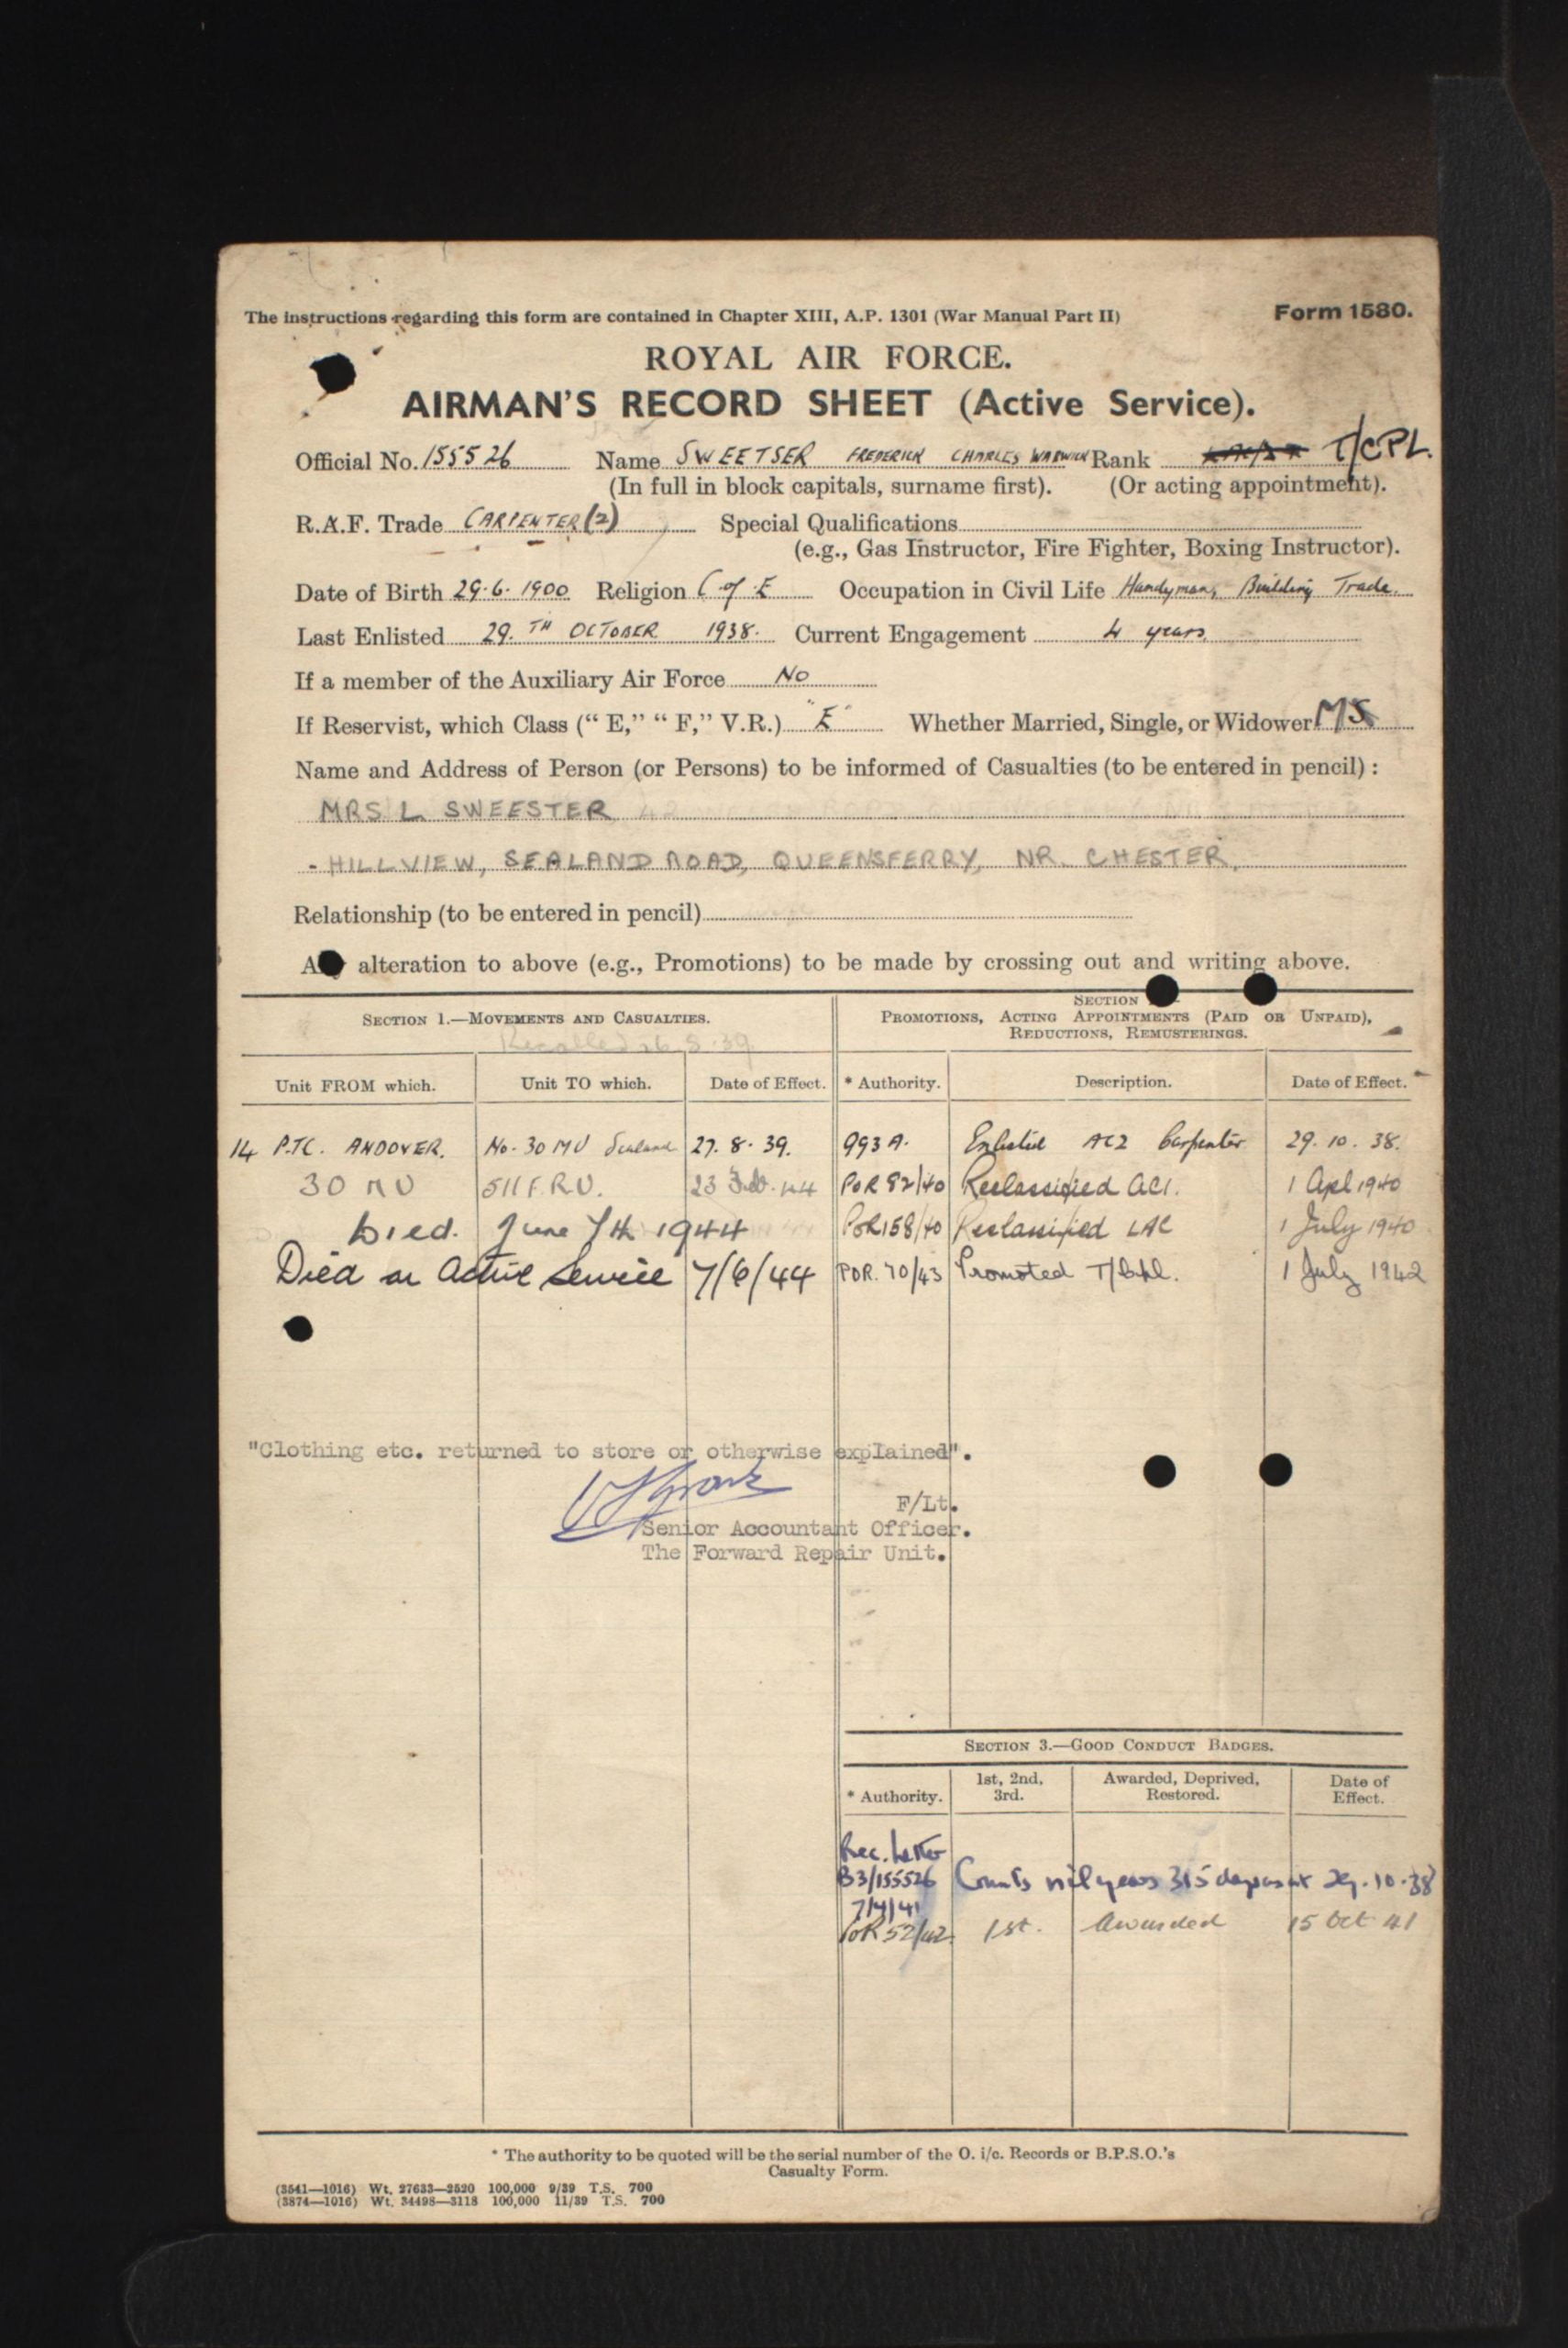 The instructions regarding this form are contained in Chapter XIII, A.P. 1301 (War Manual Part II)
Form 1580.
ROYAL AIR FORCE.
AIRMAN'S RECORD SHEET (Active Service).
Official No. 155526 Name SWEETSER FREDERICK CHARLES WARWICK Rank T/CPL.
(In full in block capitals, surname first). (Or acting appointment).
R.A.F. Trade CARPENTER (2) Special Qualifications
(e.g., Gas Instructor, Fire Fighter, Boxing Instructor).
Date of Birth 29.6.1900 Religion C of E Occupation in Civil Life Handyman, Building Trade.
Last Enlisted 29.TH OCTOBER 1938. Current Engagement 4 years
If a member of the Auxiliary Air Force No
If Reservist, which Class ("E," "F," V.R.) "E" Whether Married, Single, or Widower M S
Name and Address of Person (or Persons) to be informed of Casualties (to be entered in pencil) :
MRS L SWEESTER
- HILLVIEW, SEALAND ROAD, QUEENSFERRY, NR. CHESTER,
Relationship (to be entered in pencil)
alteration to above (e.g., Promotions) to be made by crossing out and writing above.
SECTION 1.—MOVEMENTS AND CASUALTIES.
Recalled 26.8.39
SECTION
PROMOTIONS, ACTING APPOINTMENTS (PAID OR UNPAID),
REDUCTIONS, REMUSTERINGS.
Unit FROM which. Unit TO which. Date of Effect. * Authority. Description. Date of Effect.
14 P.T.C. ANDOVER. No. 30 MU Sealand 27.8.39. 993A. Enlisted AC2 Carpenter 29.10.38.
30 MU 511 F.R.U. 23 Feb. 44 POR 82/40 Reclassified AC1. 1 Apl 1940
Died. June 7th 1944 POR 158/40 Reclassified LAC 1 July 1940
Died on Active Service 7/6/44 POR. 70/43 Promoted T/Cpl. 1 July 1942
"Clothing etc. returned to store or otherwise explained".
F/Lt.
Senior Accountant Officer.
The Forward Repair Unit.
SECTION 3.—GOOD CONDUCT BADGES.
* Authority. 1st, 2nd, 3rd. Awarded, Deprived, Restored. Date of Effect.
Rec. Letter
B3/155526 Counts nil years 315 days as at 29.10.38
7/4/41
POR 52/42 1st. Awarded 15 Oct 41
* The authority to be quoted will be the serial number of the O. i/c. Records or B.P.S.O.'s
Casualty Form.
(3541—1016) Wt. 27633—2520 100,000 9/39 T.S. 700
(3874—1016) Wt. 34498—3118 100,000 11/39 T.S. 700